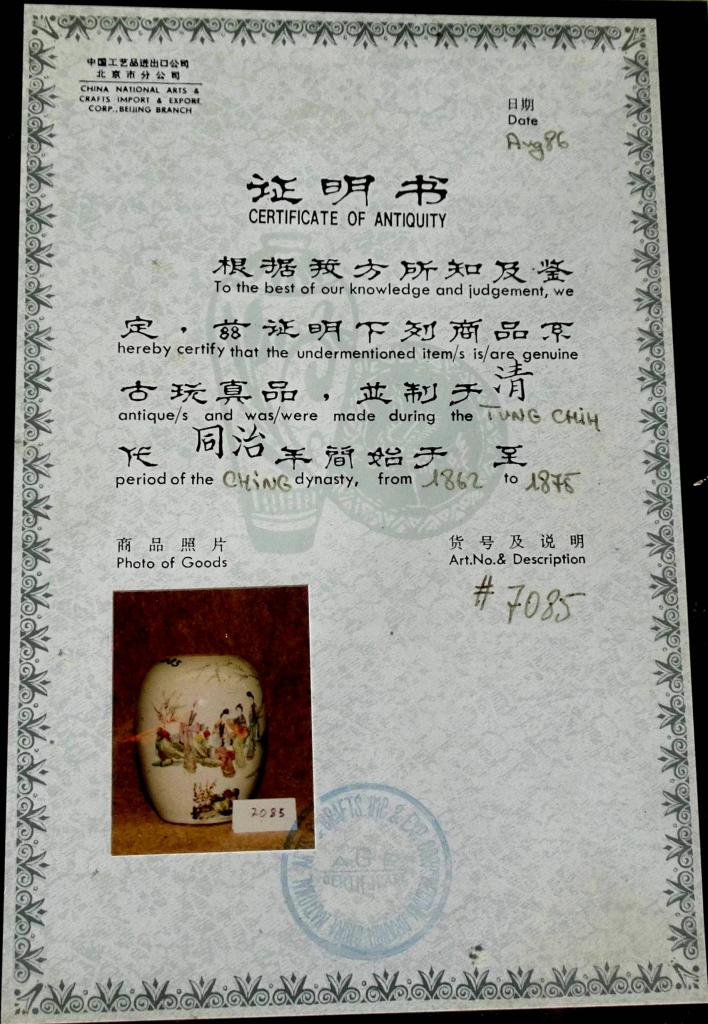 中国工艺品进出口公司
北京市分公司
CHINA NATIONAL ARTS &
CRAFTS IMPORT & EXPORT
CORP., BEIJING BRANCH
日期
Date
Aug 86
证明书
CERTIFICATE OF ANTIQUITY
根据我方所知及鉴
To the best of our knowledge and judgement, we
定，兹证明下列商品系
hereby certify that the undermentioned item/s is/are genuine
古玩真品，並制于清
antique/s and was/were made during the TUNG CHIH
代同治年间始于 至
period of the CHING dynasty, from 1862 to 1875
商品照片
Photo of Goods
货号及说明
Art.No.& Description
# 7085
7085